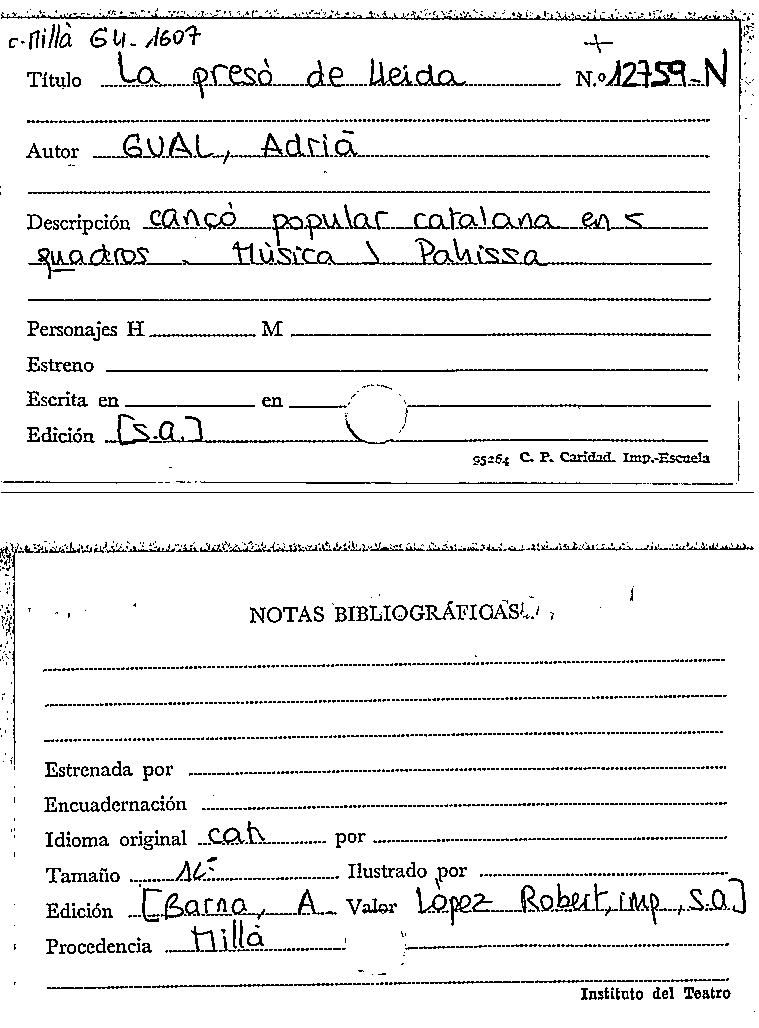 c. Millà GU-1607
Título La presó de lleida N.º 12759-N
Autor GUAL, Adrià
Descripción cançó popular catalana en 5
quadros. Música J Pahissa
Personajes H M
Estreno
Escrita en en
Edición [s.a.]
95264 C. P. Caridad. Imp.-Escuela
NOTAS BIBLIOGRÁFICAS
Estrenada por
Encuadernación
Idioma original cat por
Tamaño Ilustrado por
Edición [Barna, A. Valor López Robert, imp, s.a]
Procedencia Millà
Instituto del Teatro